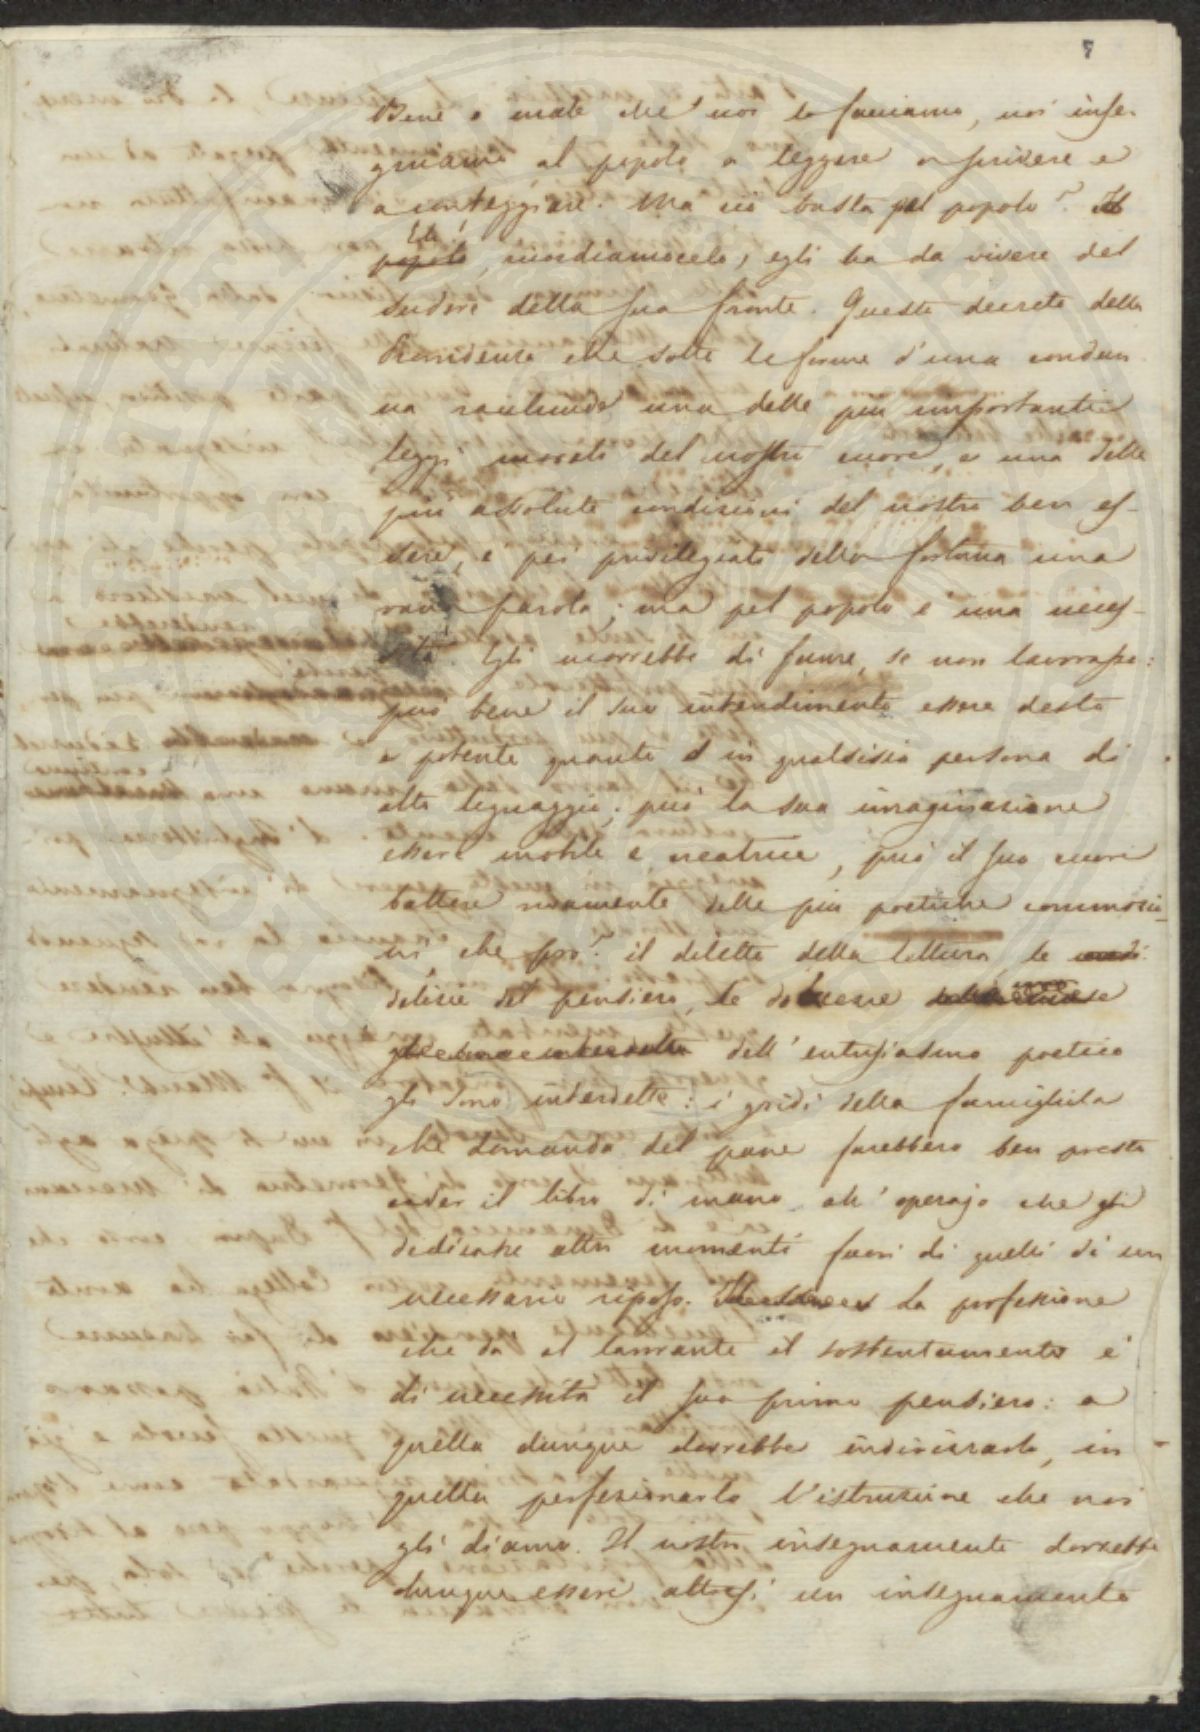 7
Bene o male che noi lo facciamo, noi inse-
gniamo al popolo a leggere a scrivere e
a conteggiare. Ma ciò basta pel popolo? Il
Egli
popolo, ricordiamocelo, egli ha da vivere del
sudore della sua fronte. Questo decreto della
Provvidenza che sotto le forme d'una condan
na racchiude una delle più importanti
leggi morali del nostro cuore, e una delle
più assolute condizioni del nostro ben es-
sere, è pei privilegiati della fortuna una
vana parola; ma pel popolo è una neces-
sità. Egli morrebbe di fame, se non lavorasse:
può bene il suo intendimento essere desto
e potente quanto in qualsisia persona di
alto lignaggio; può la sua imaginazione
essere mobile e creatrice, può il suo cuore
battere vivamente delle più poetiche commozio-
ni che pro? il diletto della lettura le
delizie del pensiero, le dolcezze
dell'entusiasmo poetico
gli sono interdette: i gridi della famigliola
che domanda del pane farebbero ben presto
cader il libro di mano all'operajo che
dedicasse altri momenti fuori di quelli di un
necessario riposo. La professione
che dà al lavorante il sostentamento è
di necessità il suo primo pensiero: a
quella dunque dovrebbe indirizzarlo, in
quella perfezionarlo l'istruzione che noi
gli diamo. Il nostro insegnamento dovrebbe
dunque essere altresì un insegnamento